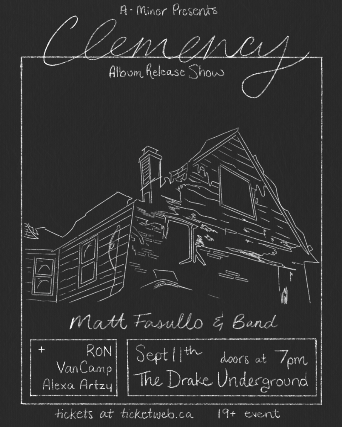 A-Minor Presents
Clemency
Album Release Show
Matt Fasullo & Band
+ RON
VanCamp
Alexa Artzy
Sept 11th doors at 7pm
The Drake Underground
tickets at ticketweb.ca 19+ event